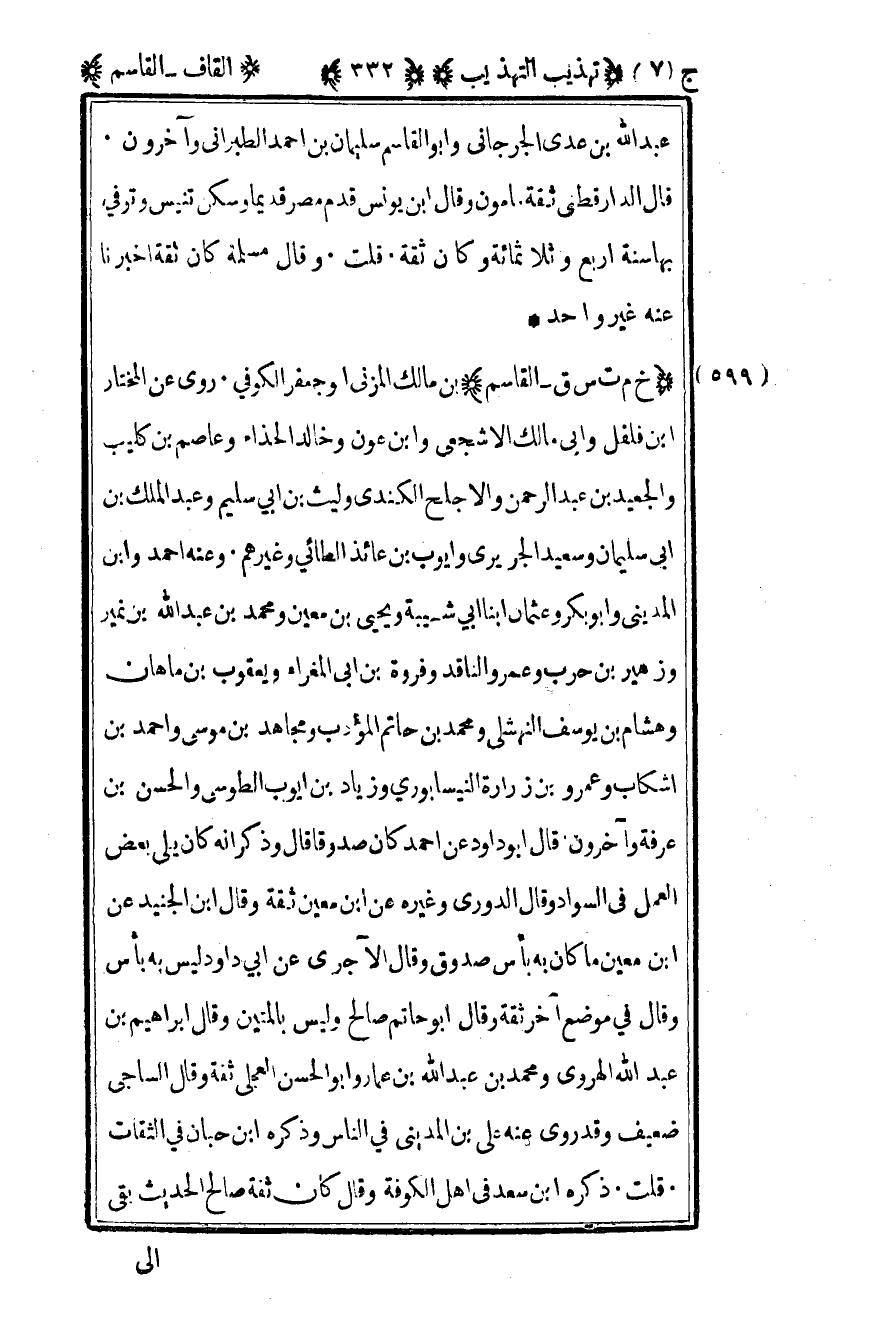 ج (٧) ﴿ تهذيب التهذيب ﴾ ﴿ ٣٣٢ ﴾ ﴿ القاف ـ القاسم ﴾
عبدالله بن عدى الجرجانى وابوالقاسم سليمان بن احمد الطبرانى وآخرون ٠
قال الدارقطنى ثقة مامون وقال ابن يونس قدم مصر قديما وسكن تنيس وتوفي
بهاسنة اربع وثلاثمائة وكان ثقة ٠ قلت ٠ وقال مسلمة كان ثقة اخبرنا
عنه غير واحد *
(٥٩٩) ﴿ خ م ت س ق ـ القاسم ﴾ بن مالك المزنى ا وجعفر الكوفي ٠ روى عن المختار
ابن فلفل وابى مالك الاشجعى وابن عون وخالد الحذاء وعاصم بن كليب
والجعيد بن عبدالرحمن والاجلح الكندى وليث بن ابي سليم وعبدالملك بن
ابى سليمان وسعيد الجريرى وايوب بن عائذ الطائي وغيرهم ٠ وعنه احمد وابن
المدينى وابوبكر وعثمان ابنا ابي شيبة ويحيى بن معين ومحمد بن عبدالله بن نمير
وزهير بن حرب وعمرو الناقد وفروة بن ابى المغراء ويعقوب بن ماهان
وهشام بن يوسف النهشلى ومحمد بن حاتم المؤدب ومجاهد بن موسى واحمد بن
اشكاب وعمرو بن زرارة النيسابوري وزياد بن ايوب الطوسى والحسن بن
عرفة وآخرون ٠ قال ابوداود عن احمد كان صدوقا قال وذكر انه كان يلى بعض
العمل فى السواد وقال الدورى وغيره عن ابن معين ثقة وقال ابن الجنيد عن
ابن معين ما كان به بأس صدوق وقال الآجرى عن ابي داود ليس به بأس
وقال في موضع آخر ثقة وقال ابوحاتم صالح وليس بالمتين وقال ابراهيم بن
عبدالله الهروى ومحمد بن عبدالله بن عمار وابوالحسن العجلى ثقة وقال الساجى
ضعيف وقد روى عنه على بن المدينى في الناس وذكره ابن حبان في الثقات
٠ قلت ٠ ذكره ابن سعد فى اهل الكوفة وقال كان ثقة صالح الحديث بقى
الى